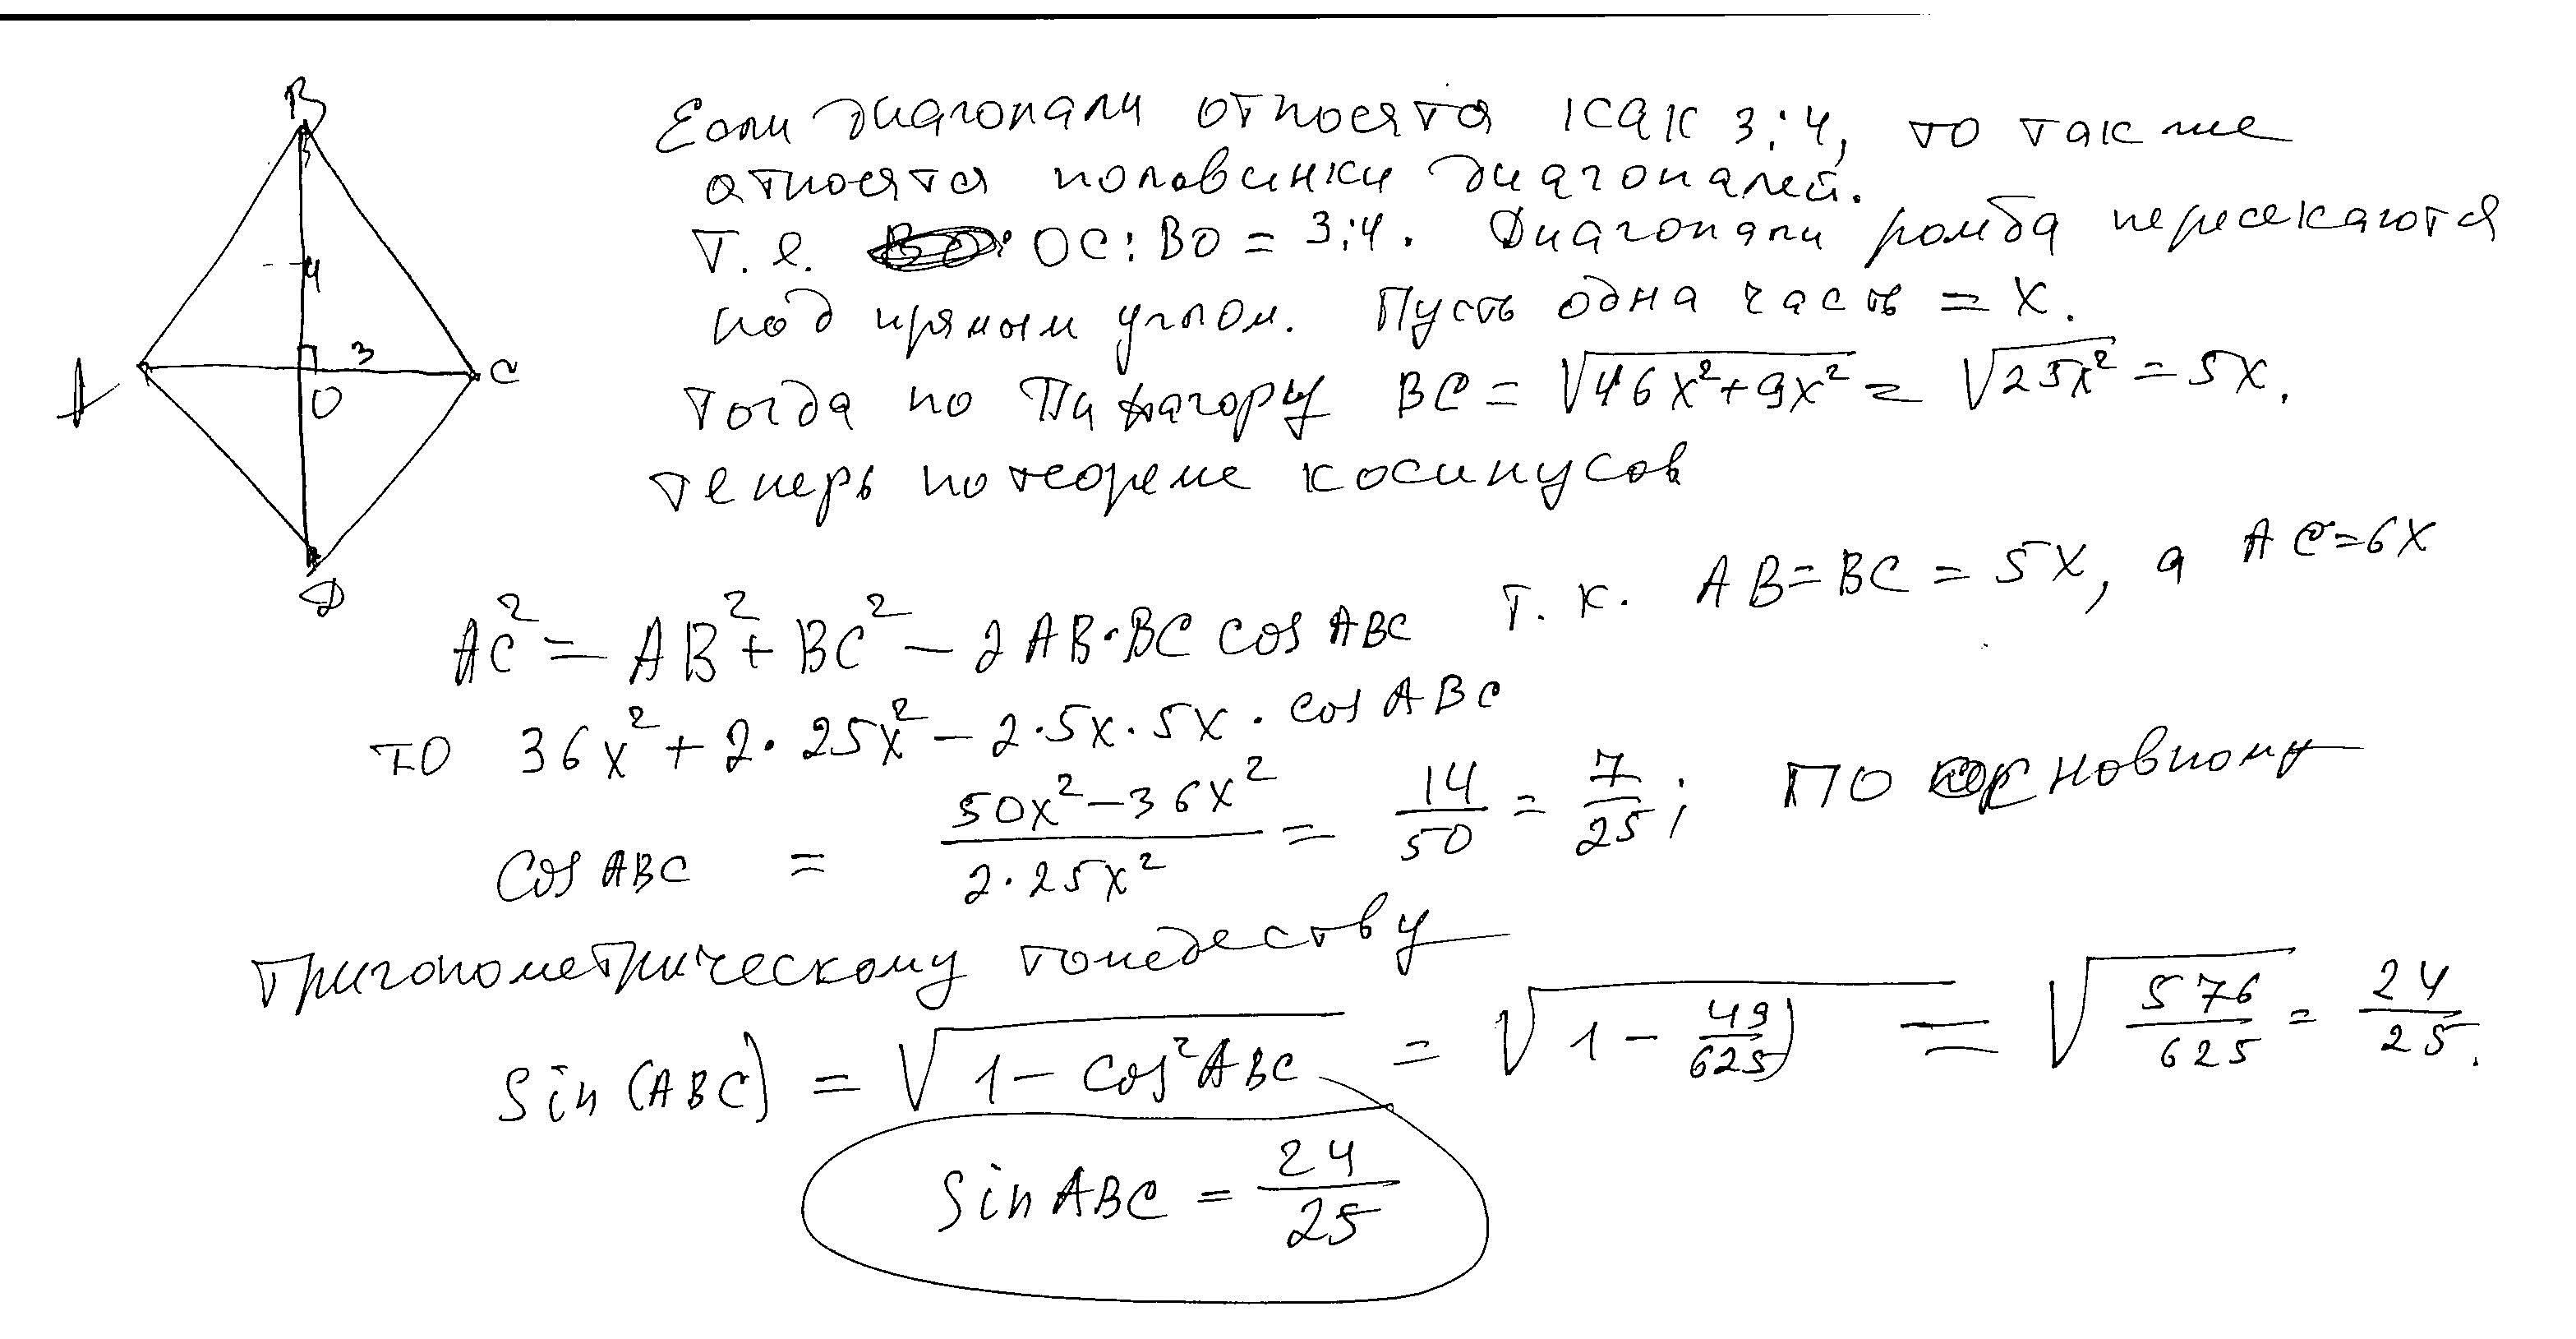 B
4
3
A
O
C
D
Если диагонали относятся как 3:4, то также
относятся половинки диагоналей.
Т.е. OC:BO = 3:4. Диагонали ромба пересекаются
под прямым углом. Пусть одна часть = x.
Тогда по Пифагору BC = √16x²+9x² = √25x² = 5x.
теперь по теореме косинусов
AC² = AB² + BC² - 2AB·BC cos ABC т.к. AB=BC=5x, а AC=6x
то 36x² + 2·25x² - 2·5x·5x·cos ABC
cos ABC = 50x²-36x² / 2·25x² = 14/50 = 7/25; по основному
тригонометрическому тождеству
sin(ABC) = √1-cos²ABC = √1-49/625) = √576/625 = 24/25.
sin ABC = 24/25